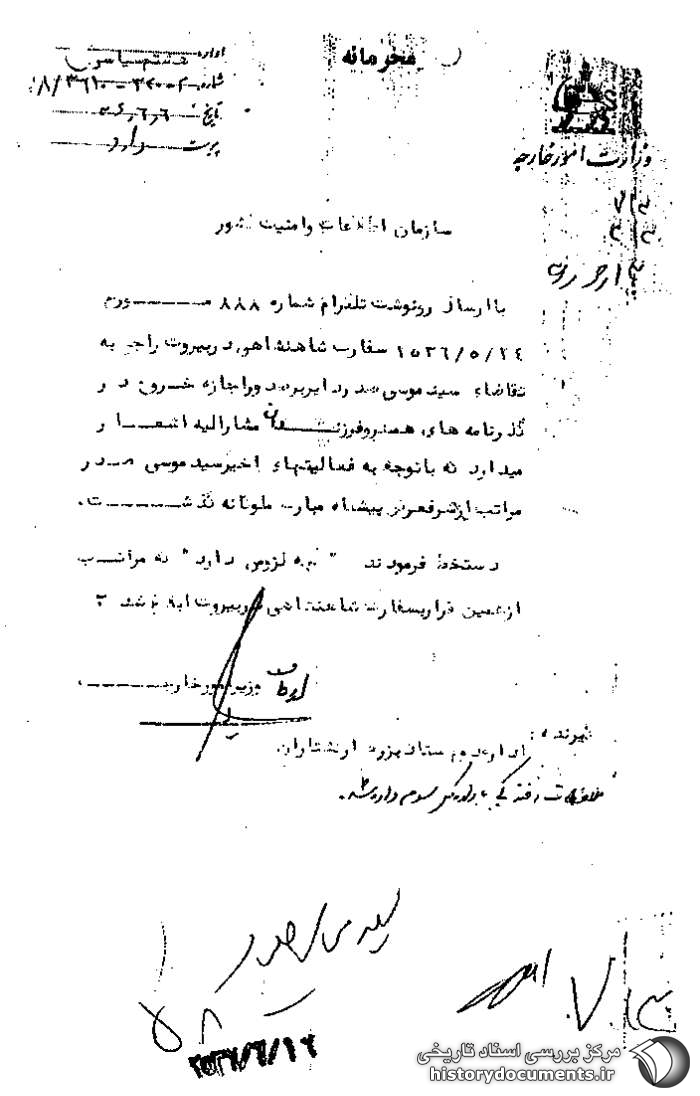 محرمانه
اداره هشتم سیاسی
شماره ۱۸/۳۶۱۰-۳۲۰۰۲
تاریخ ۳۶,۶,۶
پیوست دارد
وزارت امور خارجه
سازمان اطلاعات و امنیت کشور
با ارسال رونوشت تلگرام شماره ۸۸۸ مـورخ
۲۵۳۶/۵/۲۴ سفارت شاهنشاهی در بیروت راجع به
تقاضای سید موسی صدر دایر بر صدور اجازه خروج و
گذرنامه های همسر و فرزندان مشارالیه اشعار
میدارد که با توجه به فعالیتهای اخیر سید موسی صدر
مراتب از شرفعرض پیشگاه مبارک ملوکانه گذشت.
دستخط فرمودند " چه لزومی دارد " که مراتب
از همین قرار بسفارت شاهنشاهی در بیروت ابلاغ شد
وزیر امور خارجه
گیرنده :
اداره دوم ستاد بزرگ ارتشتاران.
سید موسی صدر
۷ ۳
۲۵۳۶/۶/۱۶
مرکز بررسی اسناد تاریخی
historydocuments.ir